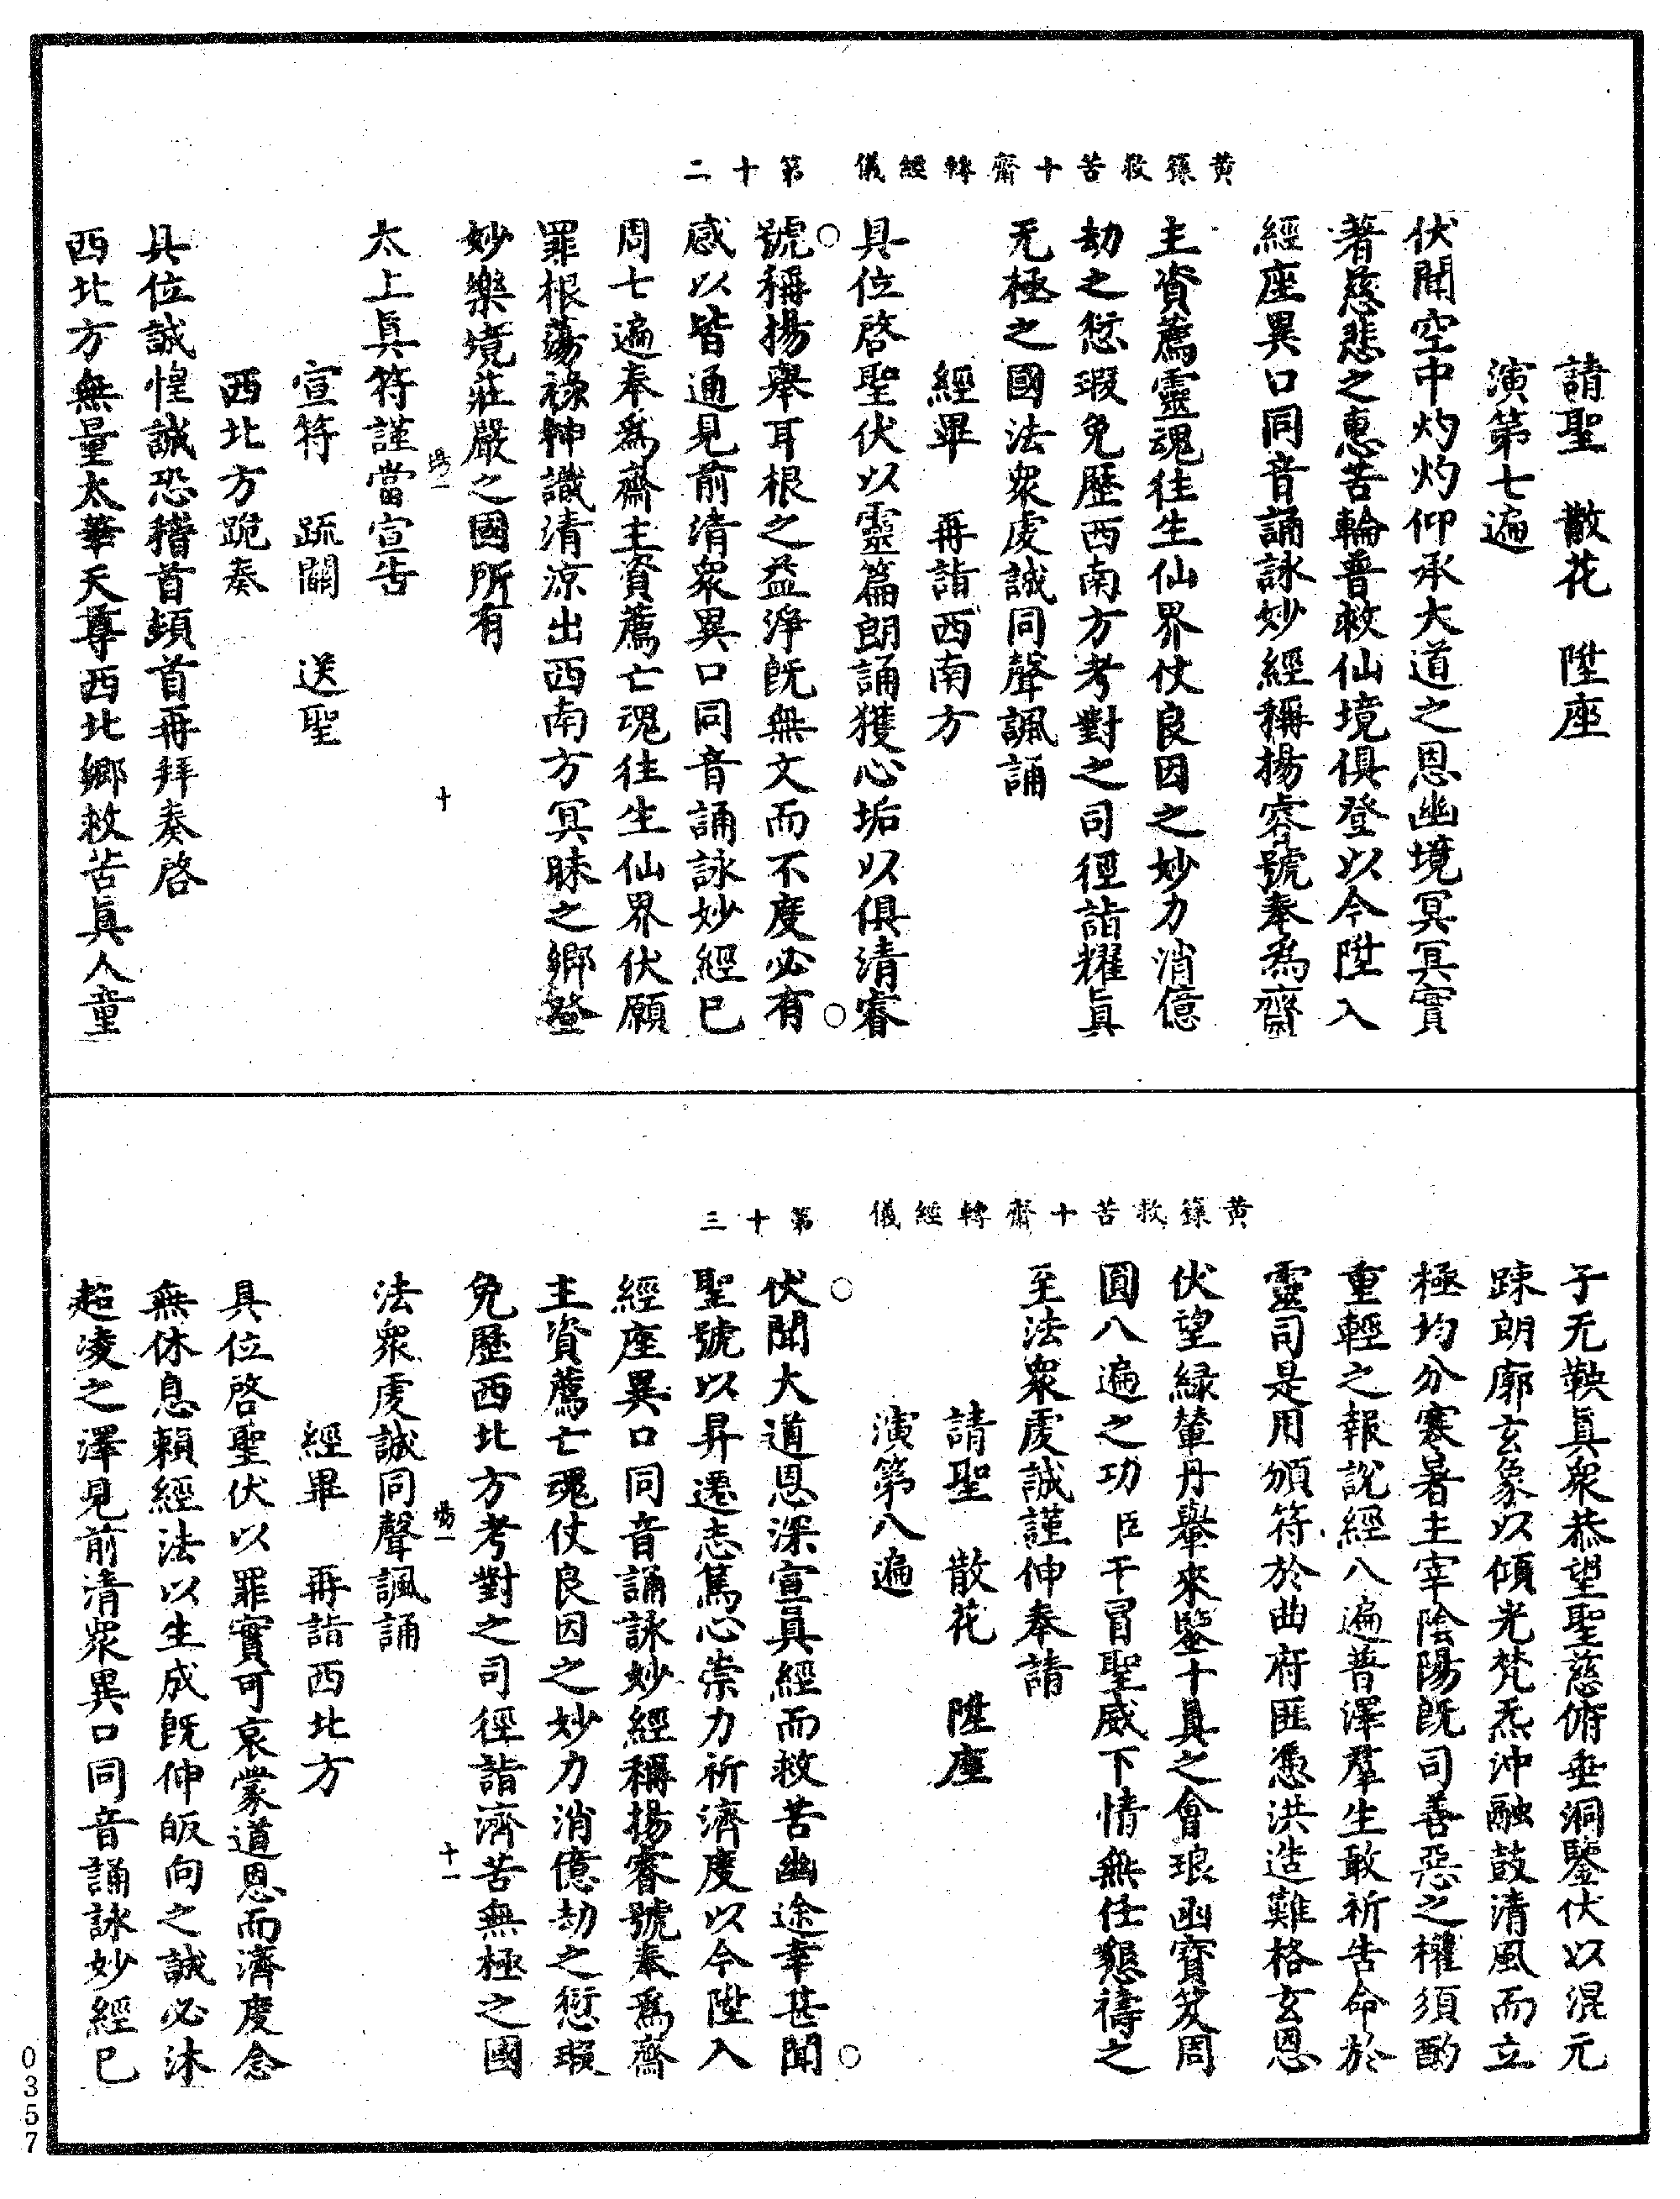 黃籙救苦十齋轉經儀　第十二
請聖　散花　陞座
演第七遍
伏聞空中灼灼仰承大道之恩幽境冥冥實
著慈悲之惠苦輪普救仙境俱登以今陞入
經座異口同音誦詠妙經稱揚睿號奉為齋
主資薦靈魂往生仙界仗良因之妙力消億
劫之愆瑕免歷西南方考對之司徑詣耀真
无極之國法衆虔誠同聲諷誦
經畢　再詣西南方
具位啓聖伏以靈篇朗誦獲心垢以俱清睿
號稱揚舉耳根之益淨旣無文而不度必有
感以皆通見前清衆異口同音誦詠妙經已
周七遍奉爲齋主資薦亡魂往生仙界伏願
罪根蕩滌神識清凉出西南方冥昧之鄉登
妙樂境莊嚴之國所有
太上眞符謹當宣告
場一　十
宣符　䟽關　送聖
西北方跪奏
具位誠惶誠恐稽首頓首再拜奏啓
西北方無量太華天尊西北鄉救苦眞人童
黃籙救苦十齋轉經儀　第十三
子无鞅眞衆恭望聖慈俯垂洞鑒伏以混元
踈朗廓玄象以傾光梵炁沖融鼓清風而立
極均分寒暑主宰陰陽旣司善惡之權須酌
重輕之報說經八遍普澤羣生敢祈告命於
靈司是用頒符於曲府匪憑洪造難格玄恩
伏望緑輦丹轝來鑒十眞之會琅函寶笈周
圓八遍之功臣干冒聖威下情無任懇禱之
至法衆虔誠謹伸奉請
請聖　散花　陞座
演第八遍
伏聞大道恩深宣眞經而救苦幽途幸甚聞
聖號以昇遷志篤心崇力祈濟度以今陞入
經座異口同音誦詠妙經稱揚睿號奉爲齋
主資薦亡魂仗良因之妙力消億劫之愆瑕
免歷西北方考對之司徑詣濟苦無極之國
法衆虔誠同聲諷誦
場一　十一
經畢　再詣西北方
具位啓聖伏以罪實可哀蒙道恩而濟度念
無休息賴經法以生成旣伸皈向之誠必沐
超凌之澤見前清衆異口同音誦詠妙經已
0357